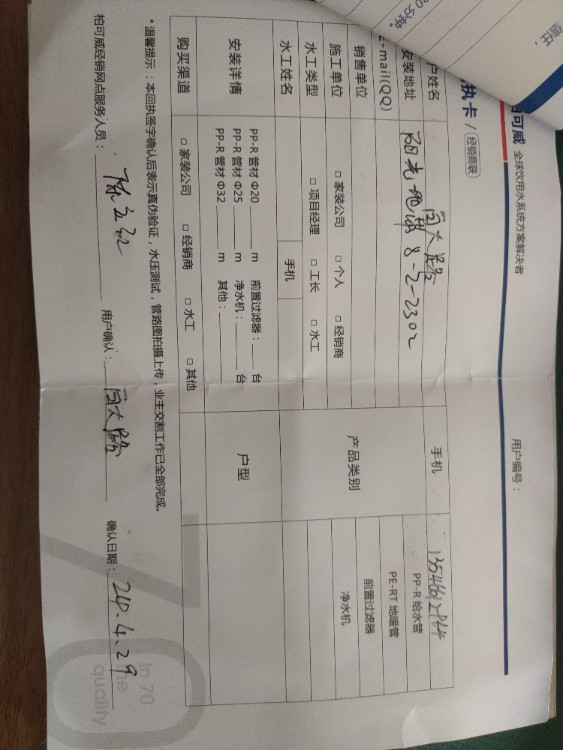 可威 全球饮用水系统方案解决者
执卡 / 经销商联
用户编号：
户姓名
手机
安装地址 阳光地带 8-2-2302
-mail(QQ)
产品类别
PP-R 给水管
PE-RT 地暖管
前置过滤器
净水机
销售单位
施工单位 □ 家装公司 □ 个人 □ 经销商
水工类型 □ 项目经理 □ 工长 □ 水工
水工姓名
手机
安装详情
PP-R 管材 Φ20 ____ m 前置过滤器：____ 台
PP-R 管材 Φ25 ____ m 净水机：____ 台
PP-R 管材 Φ32 ____ m 其他：____
户型
购买渠道 □ 家装公司 □ 经销商 □ 水工 □ 其他
*温馨提示：本回执签字确认后表示真伪验证，水压测试，管路图拍摄上传，业主交割工作已全部完成。
柏可威经销网点服务人员：
用户确认：
确认日期：24.4.29
in 70
quality
00 分钟。